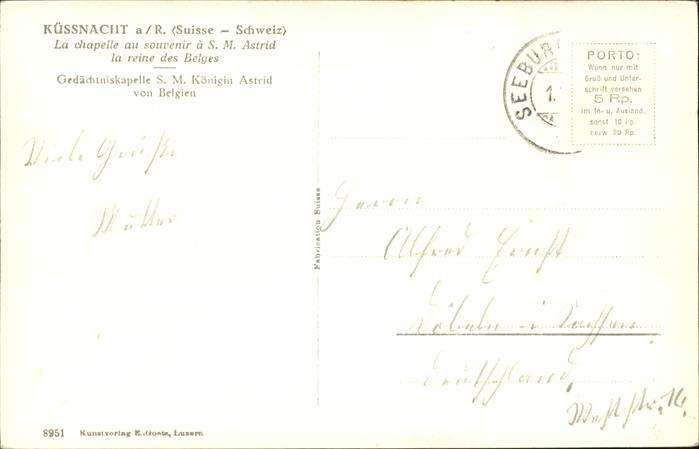 KÜSSNACHT a/R. (Suisse – Schweiz)
La chapelle au souvenir à S. M. Astrid
la reine des Belges
Gedächtniskapelle S. M. Königin Astrid
von Belgien
Viele Grüße
Mutter
SEEBUR
1.
PORTO:
Wenn nur mit
Gruß und Unter-
schrift versehen
5 Rp.
im In- u. Ausland.
sonst 10 Rp.
bezw. 20 Rp.
Fabrication Suisse
Herrn
Alfred Ernst
Döbeln i. Sachsen
Deutschland,
Weststr. 16.
8951 Kunstverlag E. Goetz, Luzern